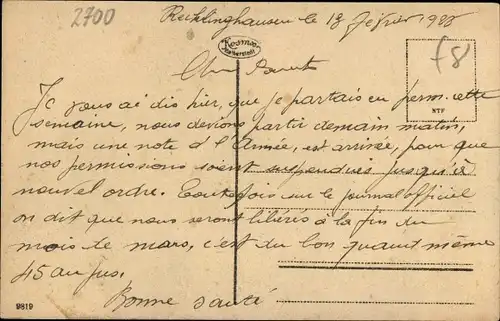 2700
Recklinghausen le 18 février 1925
Kosmos
f8
NTF
Je vous ai dis hier, que je partais en perm. cette
semaine, nous devions partir demain matin,
mais une note de l'Armée, est arrivée, pour que
nos permissions soient suspendues jusqu'à
nouvel ordre. Toutefois sur le journal officiel
on dit que nous serons libérés à la fin du
mois de mars, c'est du bon quant même
45 au jus.
9819
Bonne santé